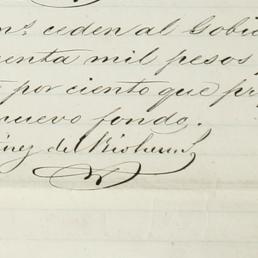 ms. ceden al Gobie
uenta mil pesos
por ciento que pr
nuevo fondo.
uez del